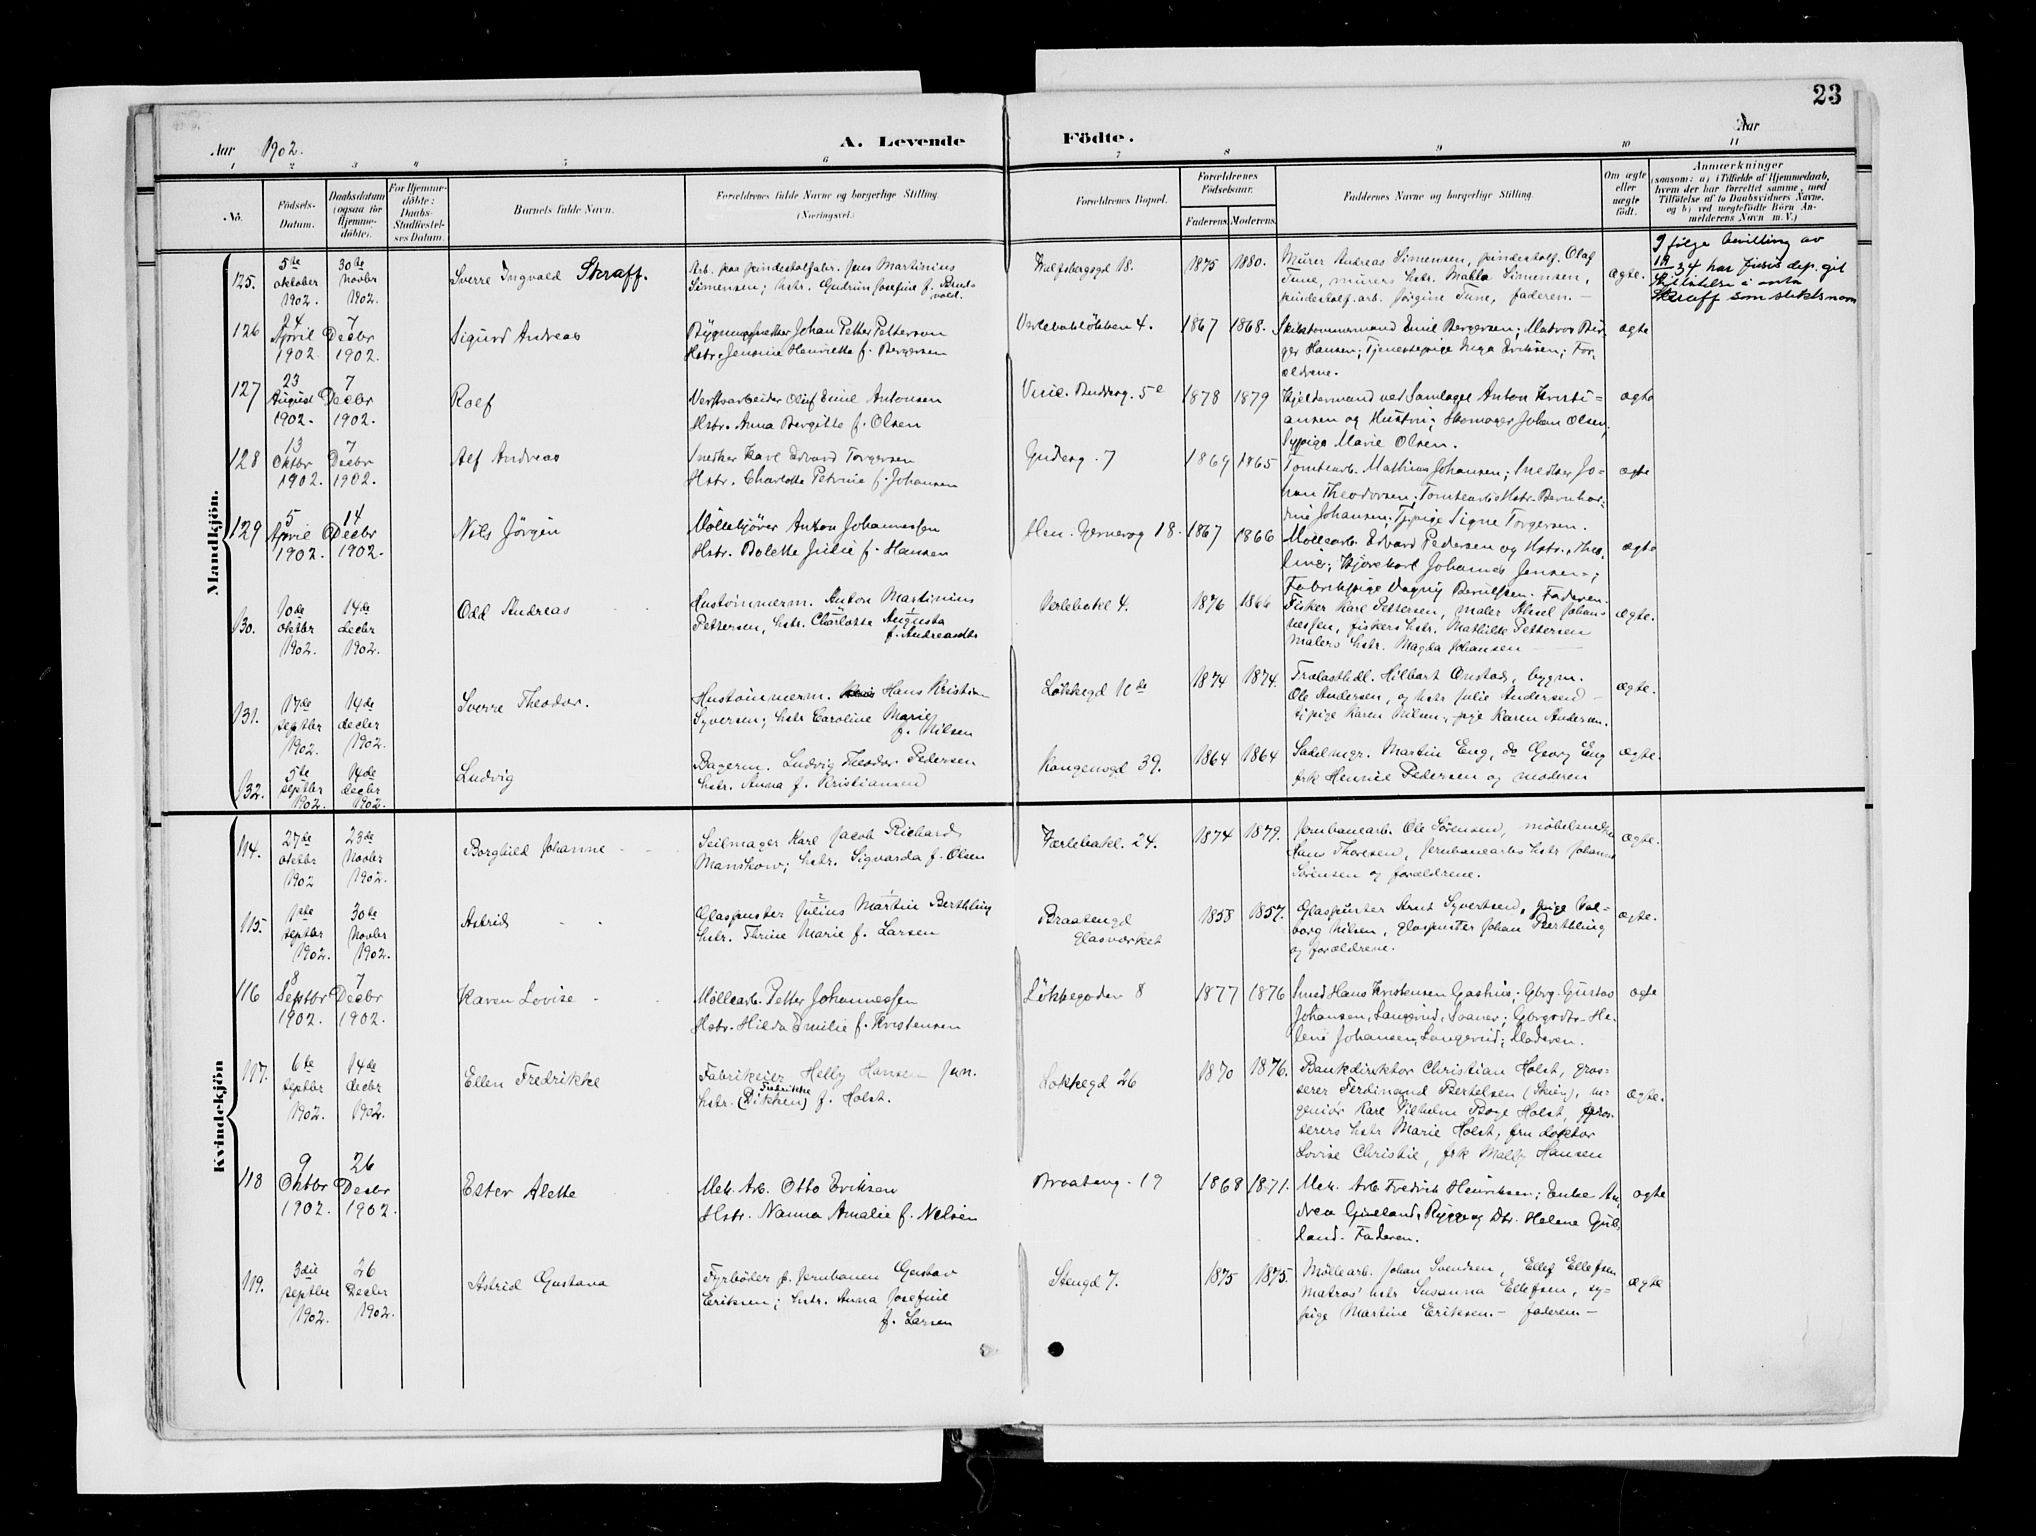 23
Aar 1902.
A. Levende Födte.
Aar
1 2 3 4 5 6 7 8 9 10 11
No.
Födsels-
Datum.
Daabsdatum
(ogsaa for
Hjemme-
döbte).
For Hjemme-
döbte:
Daabs-
Stadfæstel-
ses Datum.
Barnets fulde Navn.
Forældrenes fulde Navne og borgerlige Stilling.
(Næringsvei.)
Forældrenes Bopæl.
Forældrenes
Födselsaar.
Faderens. Moderens.
Faddernes Navne og borgerlige Stilling.
Om ægte
eller
uægte
födt.
Anmærkninger
(saasom: a) i Tilfælde af Hjemmedaab,
hvem der har forrettet samme, med
Tilföielse af to Daabsvidners Navne,
og b) ved uægtefödte Börn An-
melderens Navn m. V.)
Mandkjön.
125. 5te oktober 1902. 30te Novbr 1902.
Sverre Ingvald Skraff.
Arb. paa pindestolfabr. Jens Martinius
Simensen; hstr. Gudrun Josefine f.
1875 1880.
Murer Andreas Simensen, pindestolf. Olaf
Tune, murers hstr. Mathla Simensen,
pindestolf.arb. Jörgine Tune, faderen. —
ægte.
I følge bevilling av
34 har Justis dep. git
Skraff som slektsnavn
126 24 April 1902 7 Decbr 1902.
Sigurd Andreas
Johan Petter Pettersen
Hstr. Jensine Henriette f. Bergersen
Værlebakløkken 4.
1867 1868.
Skibstömmermand Emil Bergersen; Matros Bir-
ger Hansen; Tjenestepige Inga Eriksen; For-
ældrene.
ægte
127 23 August 1902. 7 Decbr 1902.
Rolf
Verftsarbeider Oluf Emil Antonsen
Hstr. Anna Bergitte f. Olsen
5 e
1878 1879
Kjeldermand ved Samlaget Anton Kristi-
ansen og Hustru; Skomager Johan Olsen;
Sypige Marie Olsen.
ægte
128 13 Oktbr 1902. 7 Decbr 1902.
Alf Andreas
Snedker Karl Edvard Torgersen
Hstr. Charlotte Petrine f. Johansen
Gudesg. 7
1869 1865
Tomtearb. Mathias Johansen; Snedker Jo-
han Theodorsen; Tomtearbs Hstr. Bernhar-
dine Johansen; Signe Torgersen.
ægte
129 5 April 1902. 14 Decbr 1902.
Nils Jörgen
Möllekjörer Anton Johannessen
Hstr. Bolette Julie f. Hansen
Hen. Gernerog 18.
1867 1866
Möllearb. Edvard Pedersen og Hstr. Theo-
line; Johannes Jensen;
Fabrikspige Dagny Berulfsen. Faderen.
ægte
130. 10de oktbr 1902. 14de decbr 1902.
Odd Andreas
Hustömmerm. Anton Martinius
Pettersen, hstr. Charlotte Augusta
f. Andreasdtr
Verlebakl 4.
1876 1866
Fisker Karl Pettersen, maler Aksel Johan-
nessen, fiskers hstr. Mathilde Pettersen
malers hstr. Magda Johansen
ægte.
131. 17de septbr 1902. 14de decbr 1902.
Sverre Theodor.
Hustömmerm. Hans Kristian
Syversen; hstr Caroline Marie
f. Nilsen
Løkkegd 11 de
1874 1874.
Trælasthdl. Hilbart Onstad, bygm.
Ole Andersen, og hstr Julie Andersen —
sypige Karen Nilsen, pige Karen Andersen.
ægte.
132. 5te septbr 1902. 14de decbr 1902.
Ludvig
Bagerm. Ludvig Theodor Pedersen
hstr. Anna f. Kristiansen
Kongensgd 39.
1864 1864
Sadelmgr. Martin Eng, do Georg Eng
frk Henriie Pedersen og moderen
ægte.
Kvindekjön
114. 27de oktbr 1902 23de Novbr 1902.
Borghild Johanne
Seilmager Karl Jacob Richard
Manskow; hstr. Sigvarda f. Olsen
Værlebakl. 24.
1874 1879.
Jernbanearb. Ole Sörensen, möbelsnedker
Hans Thoresen, Jernbanearbs hstr Johanne
Sörensen og forældrene.
ægte.
115. 1ste septbr 1902. 30te Novbr 1902.
Astrid
Glaspuster Julius Martin Berthling
hstr. Thrine Marie f. Larsen
Braatengd
glasværket
1858 1857.
Glaspuster Arnt Syvertsen, pige Val-
borg Nilsen, glaspuster Johan Berthling
og forældrene.
ægte.
116 8 Septbr 1902. 7 Decbr 1902.
Karen Lovise
Möllearb. Petter Johannessen
Hstr. Hilda Emilie f. Kristensen
Løkkegaden 8
1877 1876
Smed Hans Kristensen Gashus; Gbrg. Gustav
Johansen, Langerud, Saaner; Gbrgsdtr. He-
lene Johansen, Langerud; Moderen.
ægte
117. 6te septbr 1902. 14de decbr 1902.
Ellen Fredrikke
Fabrikeier Helly Hansen Jun.
hstr. (Dikken) Fredrikke f. Holst.
Løkkegd 26
1870 1876.
Bankdirektör Christian Holst, gros-
serer Ferdinand Bertelsen (Skien), in-
geniör Karl Vilhelm Boye Holst, gros-
serers hstr Marie Holst, fru doktor
Lovise Christie, frk Mally Hansen
ægte.
118 9 Oktbr 1902. 26 Decbr 1902.
Ester Alette
Mek. Arb. Otto Eriksen
Hstr. Nanna Amalie f. Nelsen
Braateng. 19
1868 1871.
Mek. Arb. Fredrik Henriksen; Enke An-
drea Gulland, Rygge og Dtr. Helene Gul-
land. Faderen.
ægte
119. 3die septbr 1902. 26 Decbr 1902.
Astrid Gustava
Fyrböder p. Jernbanen Gustav
Eriksen; hstr. Anna Josefine
f. Larsen
Stengd 7.
1875 1875.
Möllearb. Johan Svendsen, Ellef Ellefsen
matros' hstr Susanna Ellefsen, sy-
pige Martine Eriksen. — faderen —
ægte